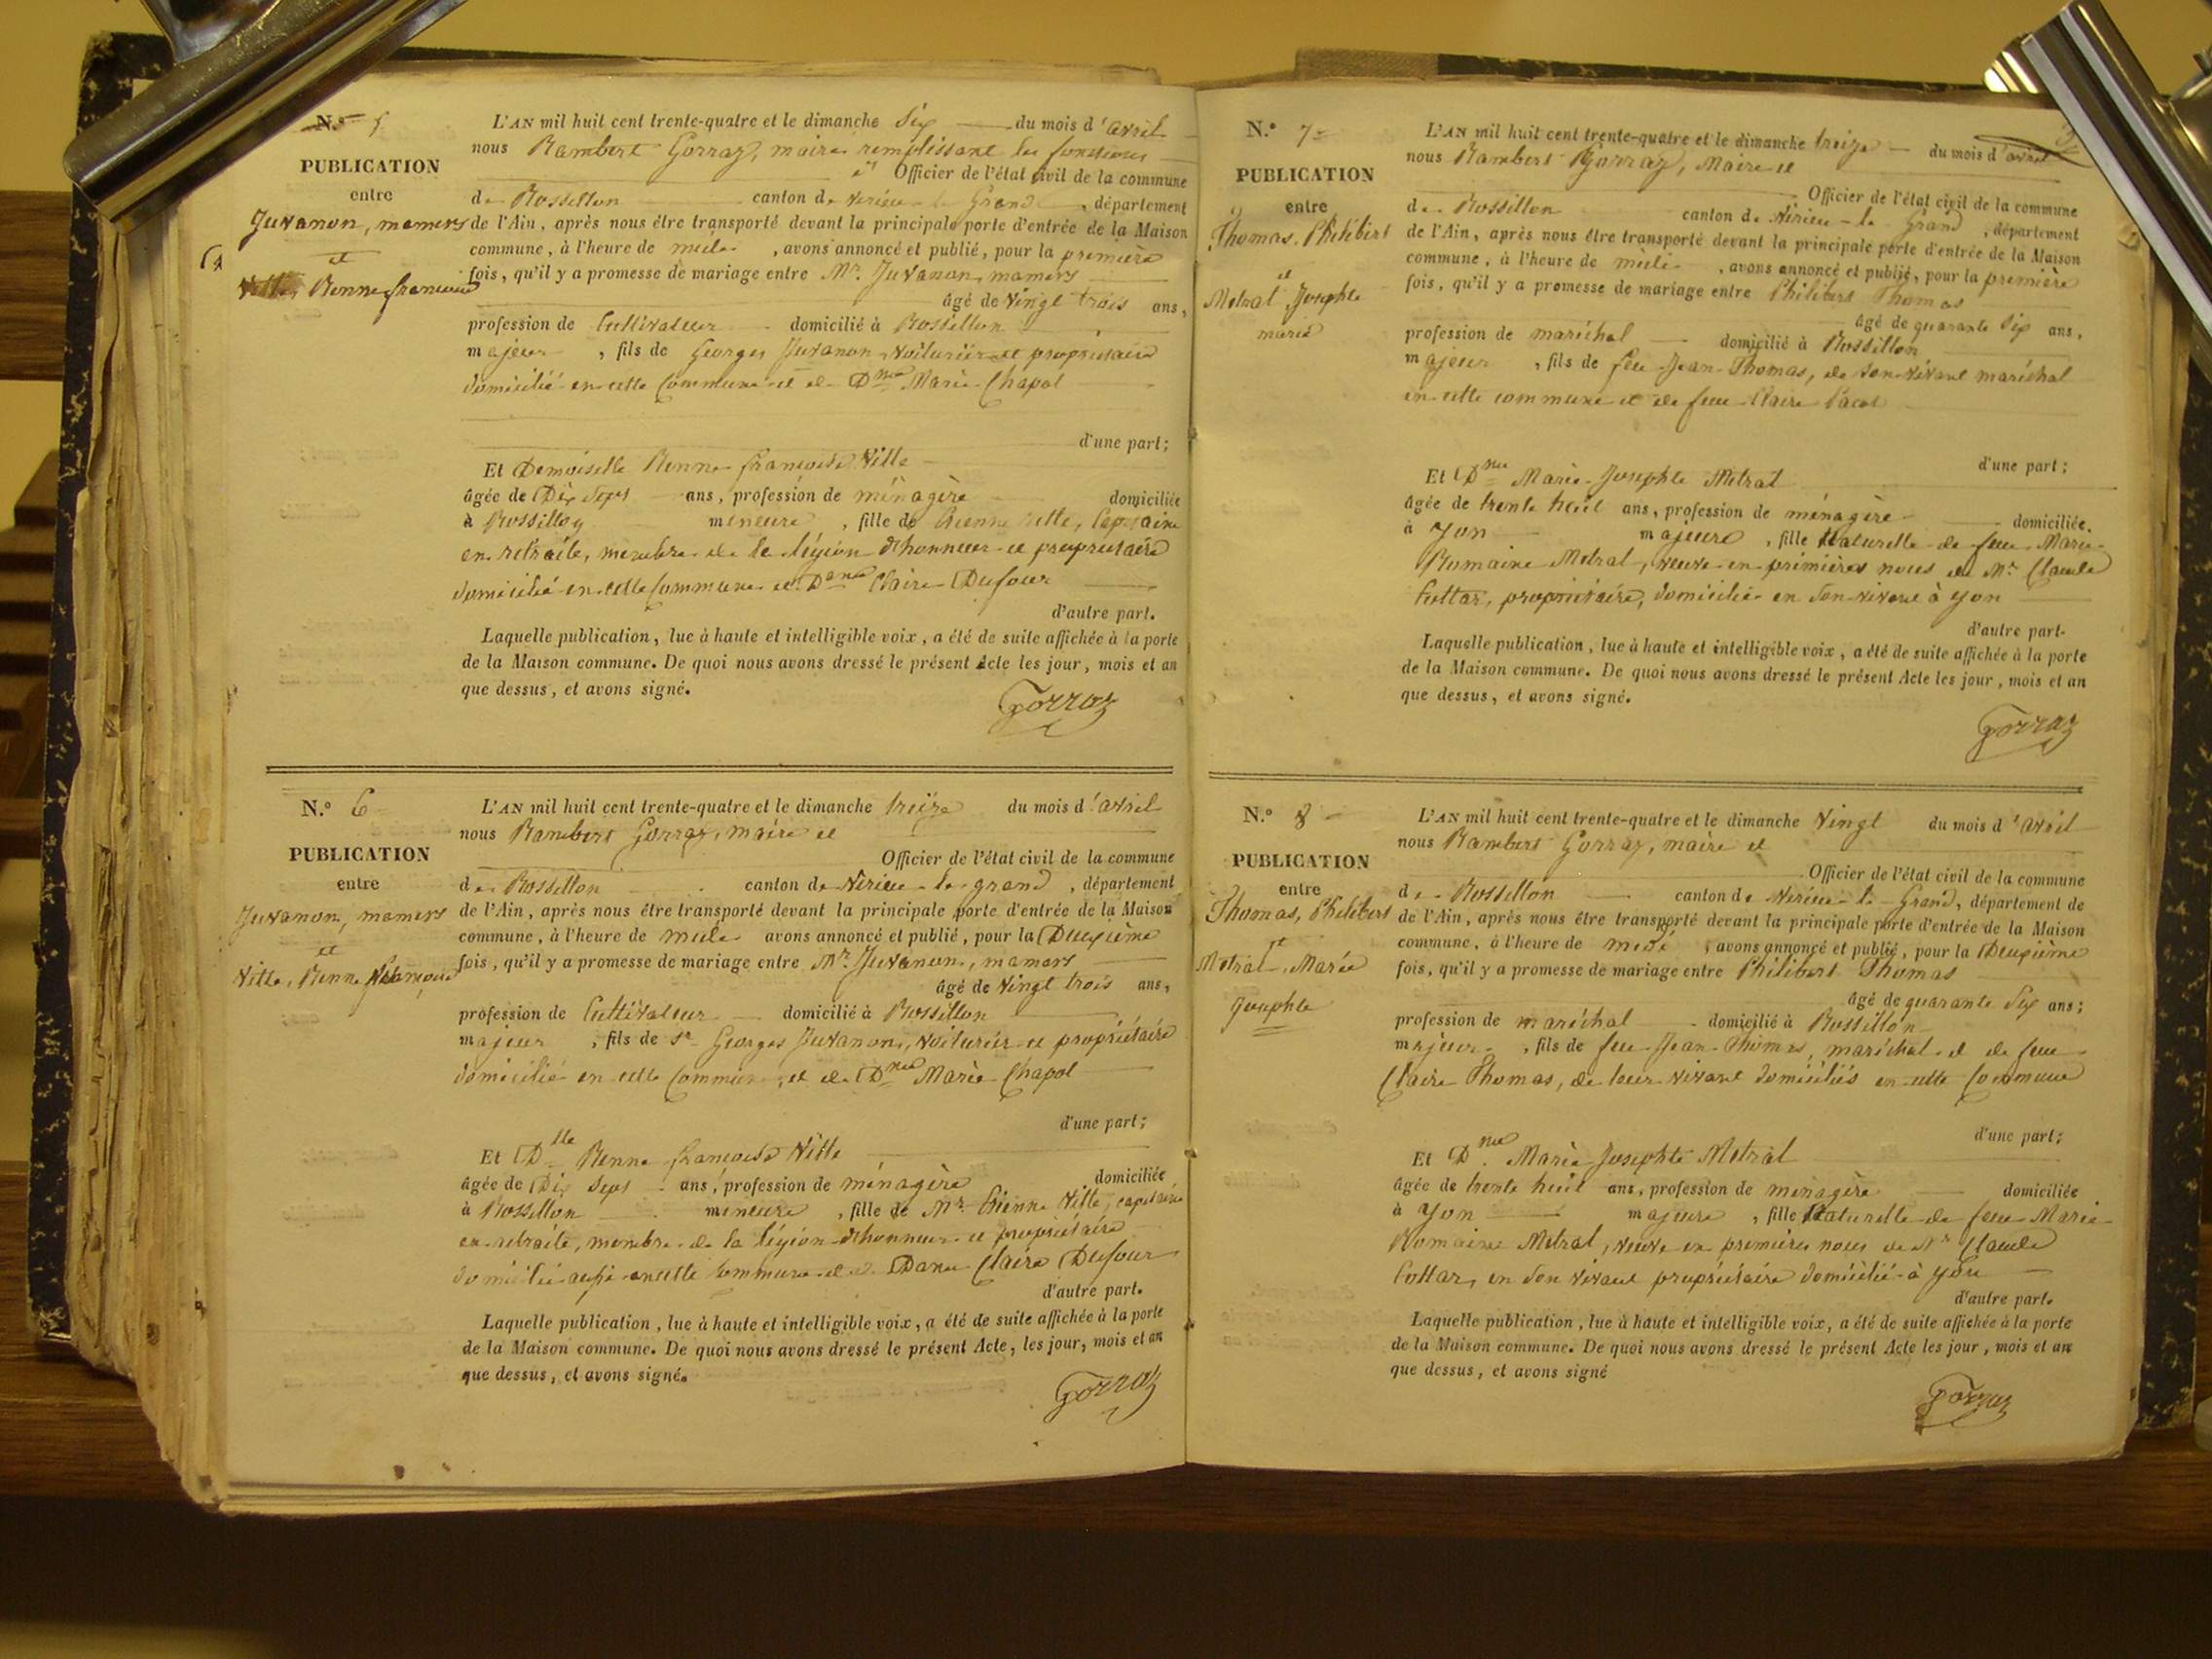 N.º 5
PUBLICATION
entre
Juvanon, mamers
et
Reine françoise
L'AN mil huit cent trente-quatre et le dimanche six du mois d'avril
nous Rambert Gorraz, maire remplissant les fonctions
d' Officier de l'état civil de la commune
de Rossillon canton de Virieu le Grand, département
de l'Ain, après nous être transporté devant la principale porte d'entrée de la Maison
commune, à l'heure de midi, avons annoncé et publié, pour la première
fois, qu'il y a promesse de mariage entre Mr. Juvanon, mamers
âgé de vingt trois ans,
profession de Cultivateur domicilié à Rossillon
majeur, fils de Georges Juvanon, voiturier et propriétaire
domicilié en cette Commune et de Dme Marie Chapot
d'une part;
Et Demoiselle Reine françoise Ville
âgée de Dix Sept ans, profession de ménagère domiciliée
à Rossillon mineure, fille de Etienne Ville, Capitaine
en retraite, membre de la légion d'honneur et propriétaire
domicilié en cette Commune et Dame Claire Dufour
d'autre part.
Laquelle publication, lue à haute et intelligible voix, a été de suite affichée à la porte
de la Maison commune. De quoi nous avons dressé le présent Acte les jour, mois et an
que dessus, et avons signé.
Gorraz
N.º 6
PUBLICATION
entre
Juvanon, mamers
et
Ville, Reine françoise
L'AN mil huit cent trente-quatre et le dimanche treize du mois d'avril
nous Rambert Gorraz, maire et
Officier de l'état civil de la commune
de Rossillon canton de Virieu-le-grand, département
de l'Ain, après nous être transporté devant la principale porte d'entrée de la Maison
commune, à l'heure de midi avons annoncé et publié, pour la Deuxième
fois, qu'il y a promesse de mariage entre Mr. Juvanon, mamers
âgé de vingt trois ans,
profession de Cultivateur domicilié à Rossillon
majeur, fils de Sr Georges Juvanon, voiturier et propriétaire
domicilié en cette Commune, et de Dme Marie Chapot
d'une part;
Et Dlle Reine françoise Ville
âgée de Dix Sept ans, profession de ménagère domiciliée
à Rossillon mineure, fille de Mr. Etienne Ville, capitaine
en retraite, membre de la légion d'honneur et propriétaire
domicilié aussi en cette Commune et de Dame Claire Dufour
d'autre part.
Laquelle publication, lue à haute et intelligible voix, a été de suite affichée à la porte
de la Maison commune. De quoi nous avons dressé le présent Acte, les jour, mois et an
que dessus, et avons signé.
Gorraz
N.º 7
PUBLICATION
entre
Thomas, Philibert
et
Metral Josephte
marie
L'AN mil huit cent trente-quatre et le dimanche treize du mois d'avril
nous Rambert Gorraz, Maire et
Officier de l'état civil de la commune
de Rossillon canton de Virieu-le-Grand, département
de l'Ain, après nous être transporté devant la principale porte d'entrée de la Maison
commune, à l'heure de midi, avons annoncé et publié, pour la première
fois, qu'il y a promesse de mariage entre Philibert Thomas
âgé de quarante six ans,
profession de maréchal domicilié à Rossillon
majeur, fils de feu Jean Thomas, de son vivant maréchal
en cette commune et de feue Claire
d'une part;
Et Dme Marie Josephte Metral
âgée de trente huit ans, profession de ménagère domiciliée.
à Yon majeure, fille Naturelle de feue Marie
Romaine Metral, veuve en premières noces de Mr Claude
Cottar, propriétaire, domicilié en son vivant à yon
d'autre part-
Laquelle publication, lue à haute et intelligible voix, a été de suite affichée à la porte
de la Maison commune. De quoi nous avons dressé le présent Acte les jour, mois et an
que dessus, et avons signé.
Gorraz
N.º 8
PUBLICATION
entre
Thomas, Philibert
et
Metral, Marie
Josephte
L'AN mil huit cent trente-quatre et le dimanche vingt du mois d'avril
nous Rambert Gorraz, maire et
Officier de l'état civil de la commune
de Rossillon canton de Virieu-le-Grand, département de
de l'Ain, après nous être transporté devant la principale porte d'entrée de la Maison
commune, à l'heure de midi, avons annoncé et publié, pour la Deuxième
fois, qu'il y a promesse de mariage entre Philibert Thomas
âgé de quarante Six ans;
profession de maréchal domicilié à Rossillon
majeur, fils de feu Jean Thomas, maréchal et de feue
Claire Thomas, de leur vivant domiciliés en cette Commune
d'une part;
Et Dme Marie Josephte Metral
âgée de trente huit ans, profession de ménagère domiciliée
à Yon majeure, fille Naturelle de feue Marie
Romaine Metral, veuve en premières noces de Mr Claude
Cottar, en son vivant propriétaire domicilié à yon
d'autre part.
Laquelle publication, lue à haute et intelligible voix, a été de suite affichée à la porte
de la Maison commune. De quoi nous avons dressé le présent Acte les jour, mois et an
que dessus, et avons signé
Gorraz